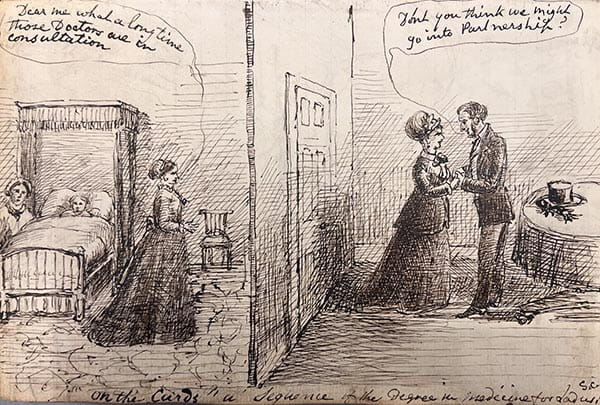 Dear me what a long time
those Doctors are in
consultation
Don't you think we might
go into Partnership?
"On the Cards" a Sequence of the Degree in Medicine for Ladies